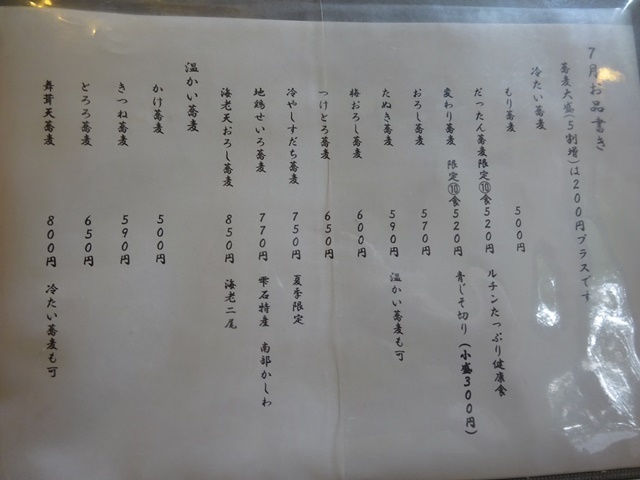 7月お品書き
蕎麦大盛(5割増)は200円プラスです
冷たい蕎麦
もり蕎麦 500円
だったん蕎麦限定⑩食520円 ルチンたっぷり健康食
変わり蕎麦 限定⑩食520円 青じそ切り(小盛300円)
おろし蕎麦 570円
たぬき蕎麦 590円 温かい蕎麦も可
梅おろし蕎麦 600円
つけとろ蕎麦 650円
冷やしすだち蕎麦 750円 夏季限定
地鶏せいろ蕎麦 770円 雫石特産 南部かしわ
海老天おろし蕎麦 850円 海老二尾
温かい蕎麦
かけ蕎麦 500円
きつね蕎麦 590円
とろろ蕎麦 650円
舞茸天蕎麦 800円 冷たい蕎麦も可